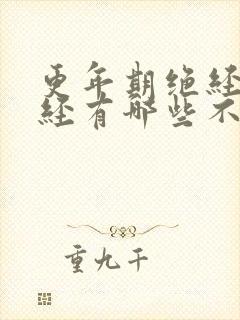 更年期绝经
经有哪些不
重九千